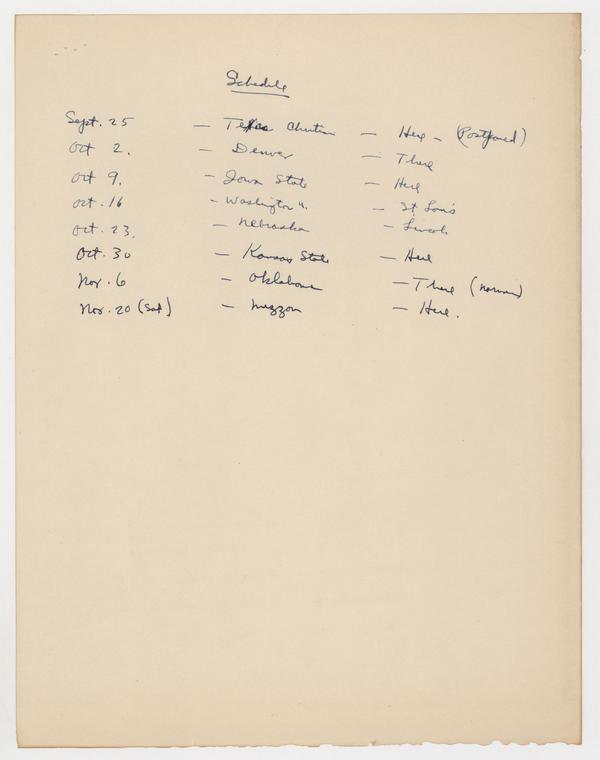 Schedule
Sept. 25 — Texas Christian — Here - (Postponed)
Oct 2. — Denver — There
Oct 9. — Iowa State — Here
Oct. 16 — Washington U. — St Louis
Oct. 23. — Nebraska — Lincoln
Oct. 30 — Kansas State — Here
Nov. 6 — Oklahoma — There (Norman)
Nov. 20 (Sat) — Mizzou — Here.